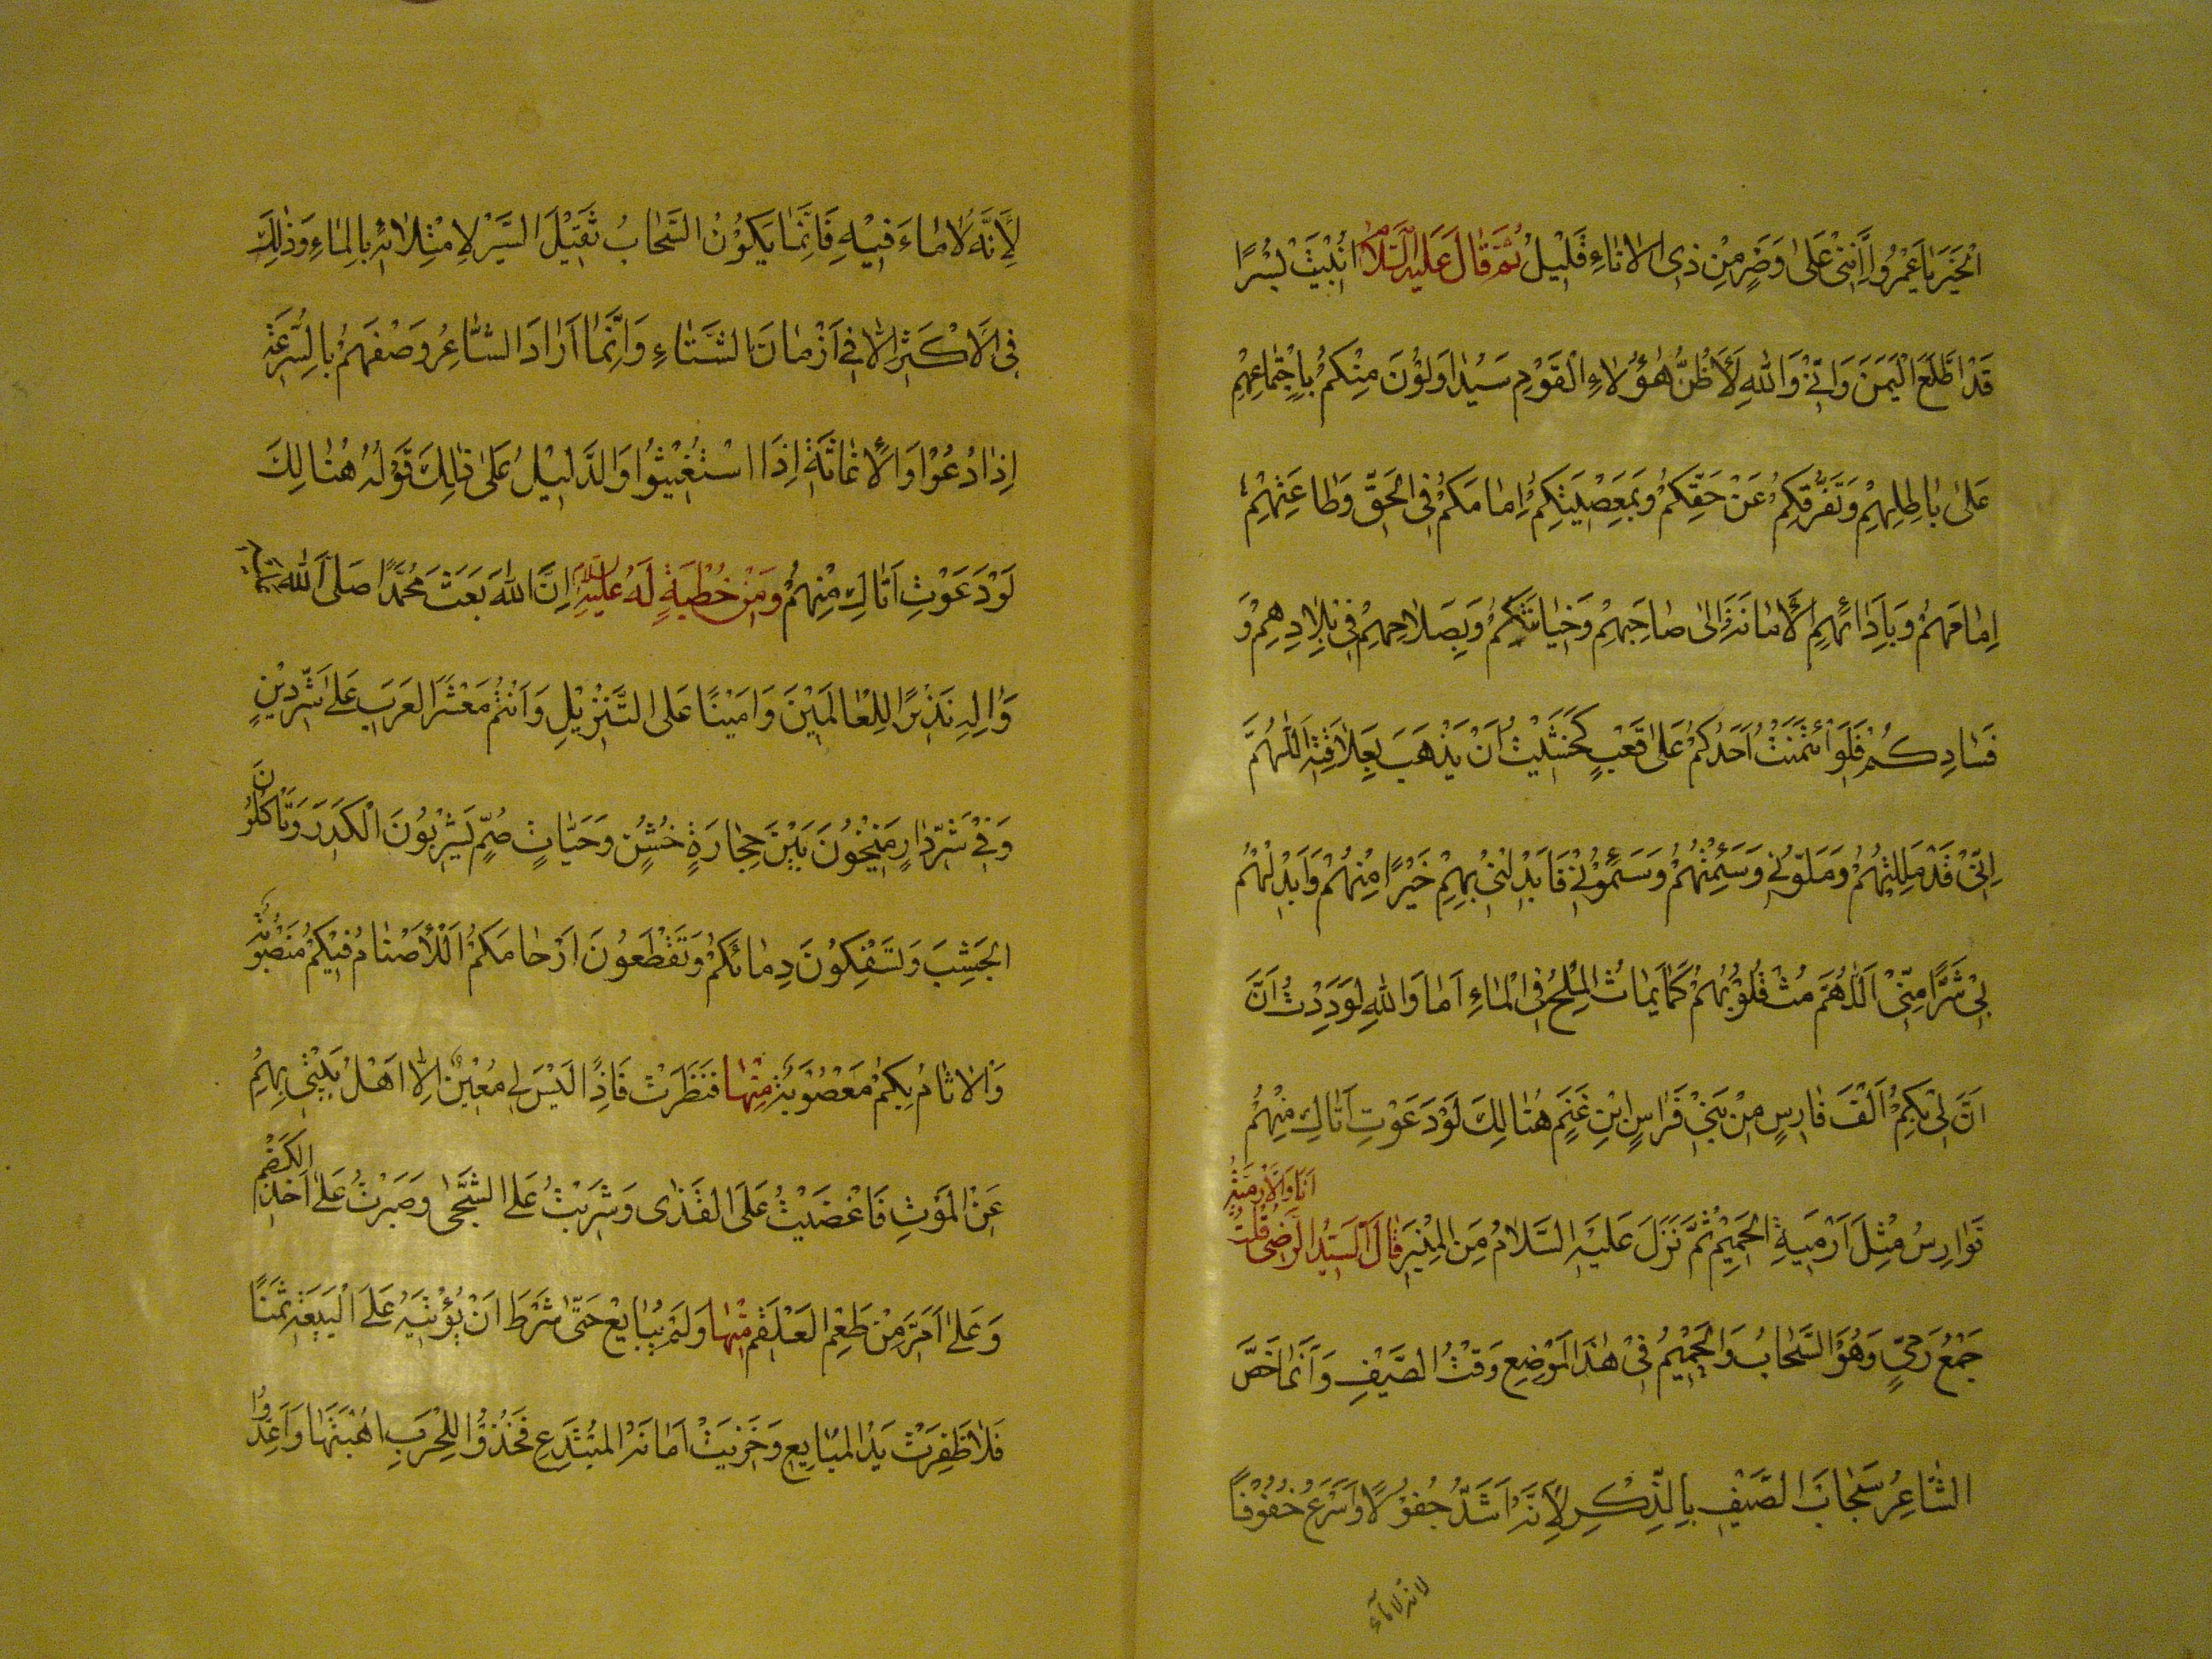 الْخَيْرِ يَا عَمْرُو اِنَّنِيْ عَلٰى وَضَرٍ مِنْ ذِى الْاِنَاءِ قَلِيْلُ ثُمَّ قَالَ عَلَيْهِ السَّلَامُ اُنْبِئْتُ بُسْرًا
قَدْ اطَّلَعَ الْيَمَنَ وَاِنِّيْ وَاللّٰهِ لَأَظُنُّ هٰؤُلَاءِ الْقَوْمِ سَيُدَاوَلُوْنَ مِنْكُمْ بِاِجْتِمَاعِهِمْ
عَلٰى بَاطِلِهِمْ وَتَفَرُّقِكُمْ عَنْ حَقِّكُمْ وَبِمَعْصِيَتِكُمْ اِمَامَكُمْ فِى الْحَقِّ وَطَاعَتِهِمْ
اِمَامَهُمْ وَبِاَدَائِهِمِ الْأَمَانَةَ اِلٰى صَاحِبِهِمْ وَخِيَانَتِكُمْ وَبِصَلَاحِهِمْ فِىْ بِلَادِهِمْ وَ
فَسَادِكُمْ فَلَوْ ائْتَمَنْتُ اَحَدَكُمْ عَلٰى قَعْبٍ لَخَشِيْتُ اَنْ يَذْهَبَ بِعِلَاقَتِهِ اَللّٰهُمَّ
اِنِّىْ قَدْ مَلِلْتُهُمْ وَمَلُّوْنِىْ وَسَئِمْتُهُمْ وَسَئِمُوْنِىْ فَاَبْدِلْنِىْ بِهِمْ خَيْرًا مِنْهُمْ وَاَبْدِلْهُمْ
بِىْ شَرًّا مِنِّىْ اَللّٰهُمَّ مُثْ قُلُوْبَهُمْ كَمَا يُمَاثُ الْمِلْحُ فِى الْمَاءِ اَمَا وَاللّٰهِ لَوَدِدْتُ اَنَّ
اَنَّ لِىْ بِكُمْ اَلْفَ فَارِسٍ مِنْ بَنِىْ فَرَاسِ ابْنِ غَنَمٍ هُنَالِكَ لَوْ دَعَوْتَ اَتَاكَ مِنْهُمْ
فَوَارِسُ مِثْلَ اَرْمِيَةِ الْحَمِيْمِ ثُمَّ نَزَلَ عَلَيْهِ السَّلَامُ مِنَ الْمِنْبَرِ قَالَ السَّيِّدُ الرَّضِىُّ قُلْتُ اَنَا وَالْاَرْمِيَةُ
جَمْعُ رَمِىٍّ وَهُوَ السَّحَابُ وَالْحَمِيْمُ فِىْ هٰذَا الْمَوْضِعِ وَقْتُ الصَّيْفِ وَاِنَّمَا خَصَّ
الشَّاعِرُ سَحَابَ الصَّيْفِ بِالذِّكْرِ لِأَنَّهُ اَشَدُّ جُفُوْلًا وَاَسْرَعُ خُفُوْفًا
لانه لا ماء
لِأَنَّهُ لَا مَاءَ فِيْهِ فَاِنَّمَا يَكُوْنُ السَّحَابُ ثَقِيْلَ السَّيْرِ لِامْتِلَائِهِ بِالْمَاءِ وَذٰلِكَ
فِى الْاَكْثَرِ اِلَّا فِىْ اَزْمَانَ الشِّتَاءِ وَاِنَّمَا اَرَادَ الشَّاعِرُ وَصْفَهُمْ بِالسُّرْعَةِ
اِذَا دُعُوْا وَالْاِغَاثَةِ اِذَا اسْتُغِيْثُوا وَالدَّلِيْلُ عَلٰى ذٰلِكَ قَوْلُهُ هُنَالِكَ
لَوْ دَعَوْتَ اَتَاكَ مِنْهُمْ وَمِنْ خُطْبَةٍ لَهُ عَلَيْهِ السَّلَامُ اِنَّ اللّٰهَ بَعَثَ مُحَمَّدًا صَلَّى اللّٰهُ عَلَيْهِ
وَاٰلِهِ نَذِيْرًا لِلْعَالَمِيْنَ وَاَمِيْنًا عَلَى التَّنْزِيْلِ وَاَنْتُمْ مَعْشَرَ الْعَرَبِ عَلٰى شَرِّ دِيْنٍ
وَفِىْ شَرِّ دَارٍ مُنِيْخُوْنَ بَيْنَ حِجَارَةٍ خُشُنٍ وَحَيَّاتٍ صُمٍّ تَشْرَبُوْنَ الْكَدَرَ وَتَأْكُلُوْنَ
الْجَشِبَ وَتَسْفِكُوْنَ دِمَائَكُمْ وَتَقْطَعُوْنَ اَرْحَامَكُمْ اَلْأَصْنَامُ فِيْكُمْ مَنْصُوْبَةٌ
وَالْاٰثَامُ بِكُمْ مَعْصُوْبَةٌ مِنْهَا فَنَظَرْتُ فَاِذًا لَيْسَ لِى مُعِيْنٌ اِلَّا اَهْلُ بَيْتِىْ بِهِمْ
عَنْ الْمَوْتِ فَاَغْضَيْتُ عَلَى الْقَذٰى وَشَرِبْتُ عَلَى الشَّجٰى وَصَبَرْتُ عَلٰى اَخْذِ الْكَظْمِ
وَعَلٰى اَمَرَّ مِنْ طَعْمِ الْعَلْقَمِ مِنْهَا وَلَمْ يُبَايِعْ حَتّٰى شَرَطَ اَنْ يُؤْتِيَهُ عَلَى الْبَيْعَةِ ثَمَنًا
فَلَا ظَفِرَتْ يَدُ الْمُبَايِعِ وَخَزِيَتْ اَمَانَةُ الْمُبْتَدِعِ فَخُذُوْا لِلْحَرْبِ اُهْبَتَهَا وَاَعِدُّوْا